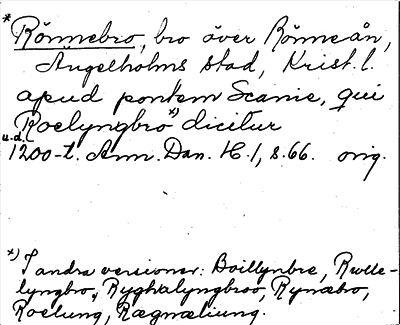 * Rönnebro, bro över Rönneån,
Ängelholms stad, Krist. l.
apud pontem Scanie, qui
Roelyngbro *) dicitur
u.d.
1200-t. Ann. Dan. H. 1, s. 66. orig.
*) I andra versioner: Boillynbre, Rwlle-
lyngbro, Ryghælyngbroo, Rynæbro,
Roelung, Rægnæliung.